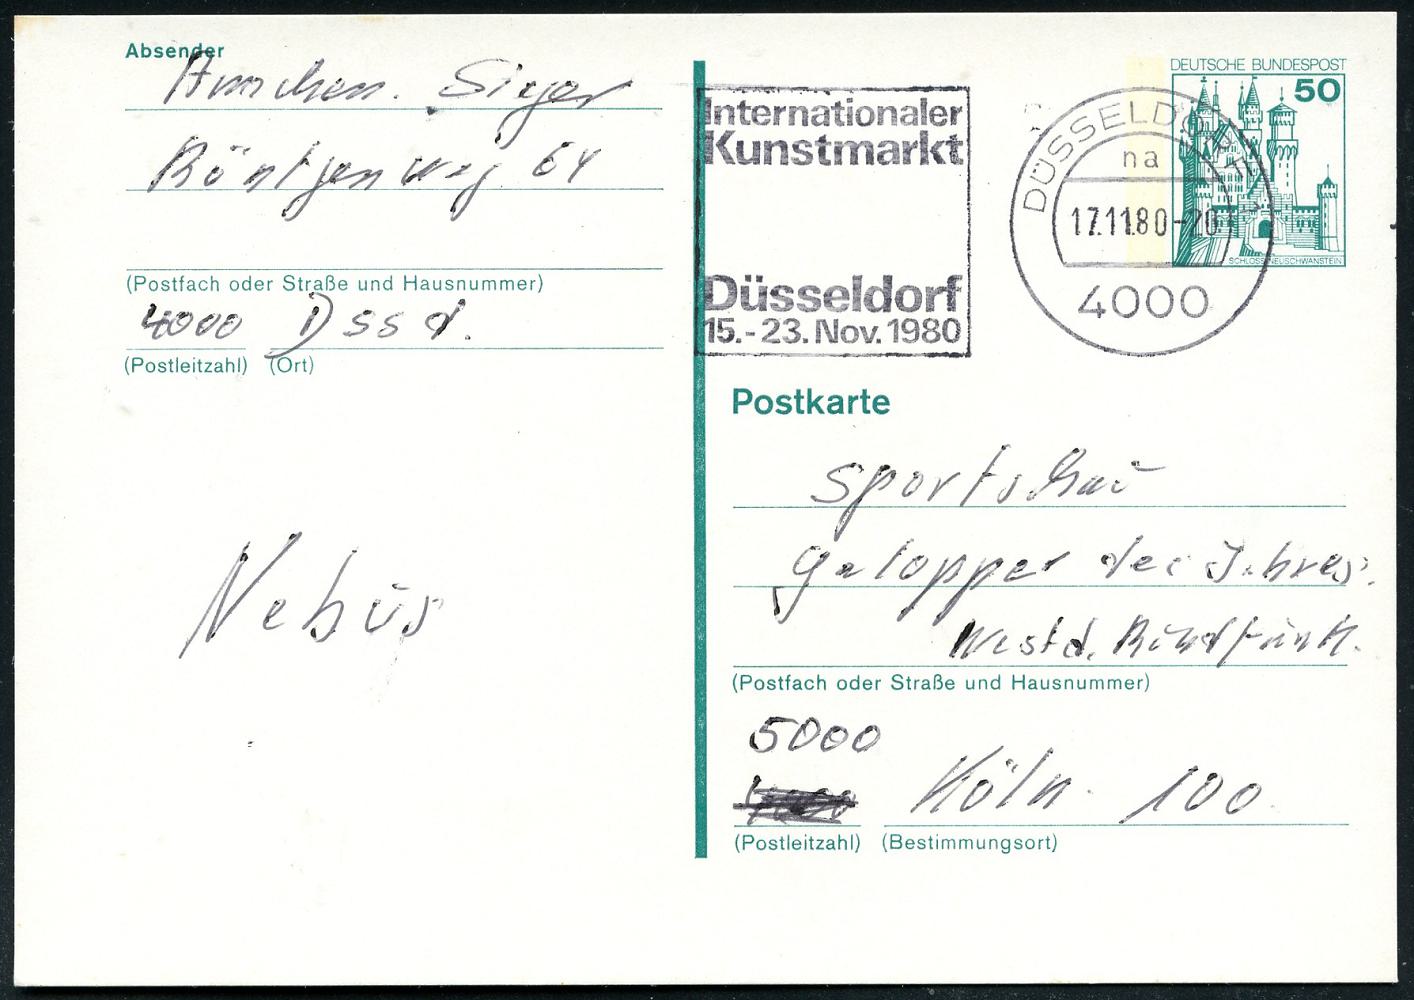 Absender
Annchen. Sieger
Röntgenweg 64
(Postfach oder Straße und Hausnummer)
4000 Dssd.
(Postleitzahl) (Ort)
Nebus
Internationaler
Kunstmarkt
Düsseldorf
15.-23. Nov. 1980
DÜSSELDORF
na
17.11.80-20
4000
DEUTSCHE BUNDESPOST
50
SCHLOSS NEUSCHWANSTEIN
Postkarte
Sportschau
Galopper des Jahres.
Westd. Rundfunk.
(Postfach oder Straße und Hausnummer)
5000
Köln 100
(Postleitzahl) (Bestimmungsort)